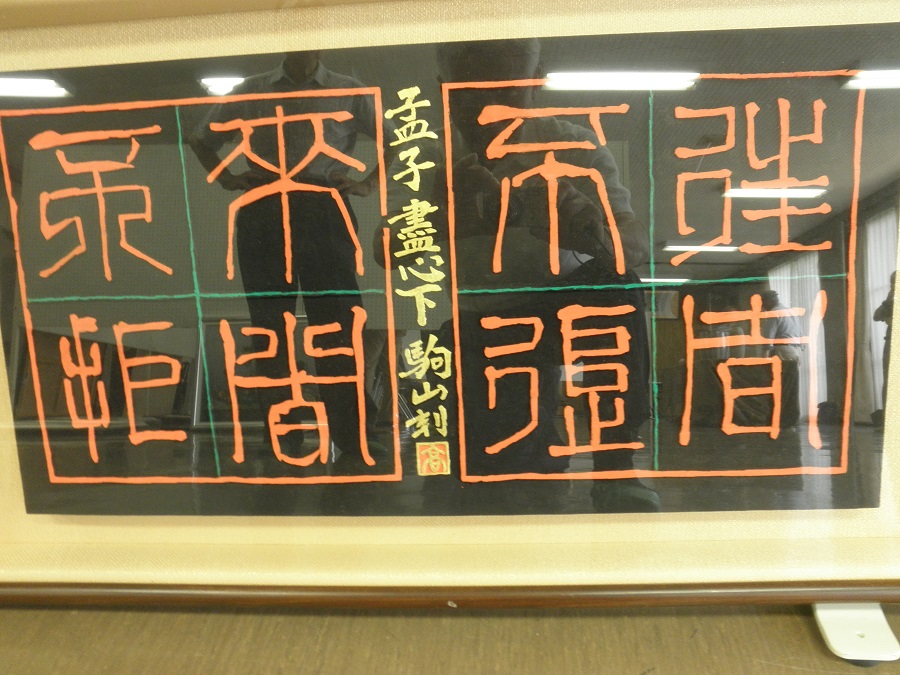 往者
不追
孟子盡心下 駒山刻
高
來者
不拒